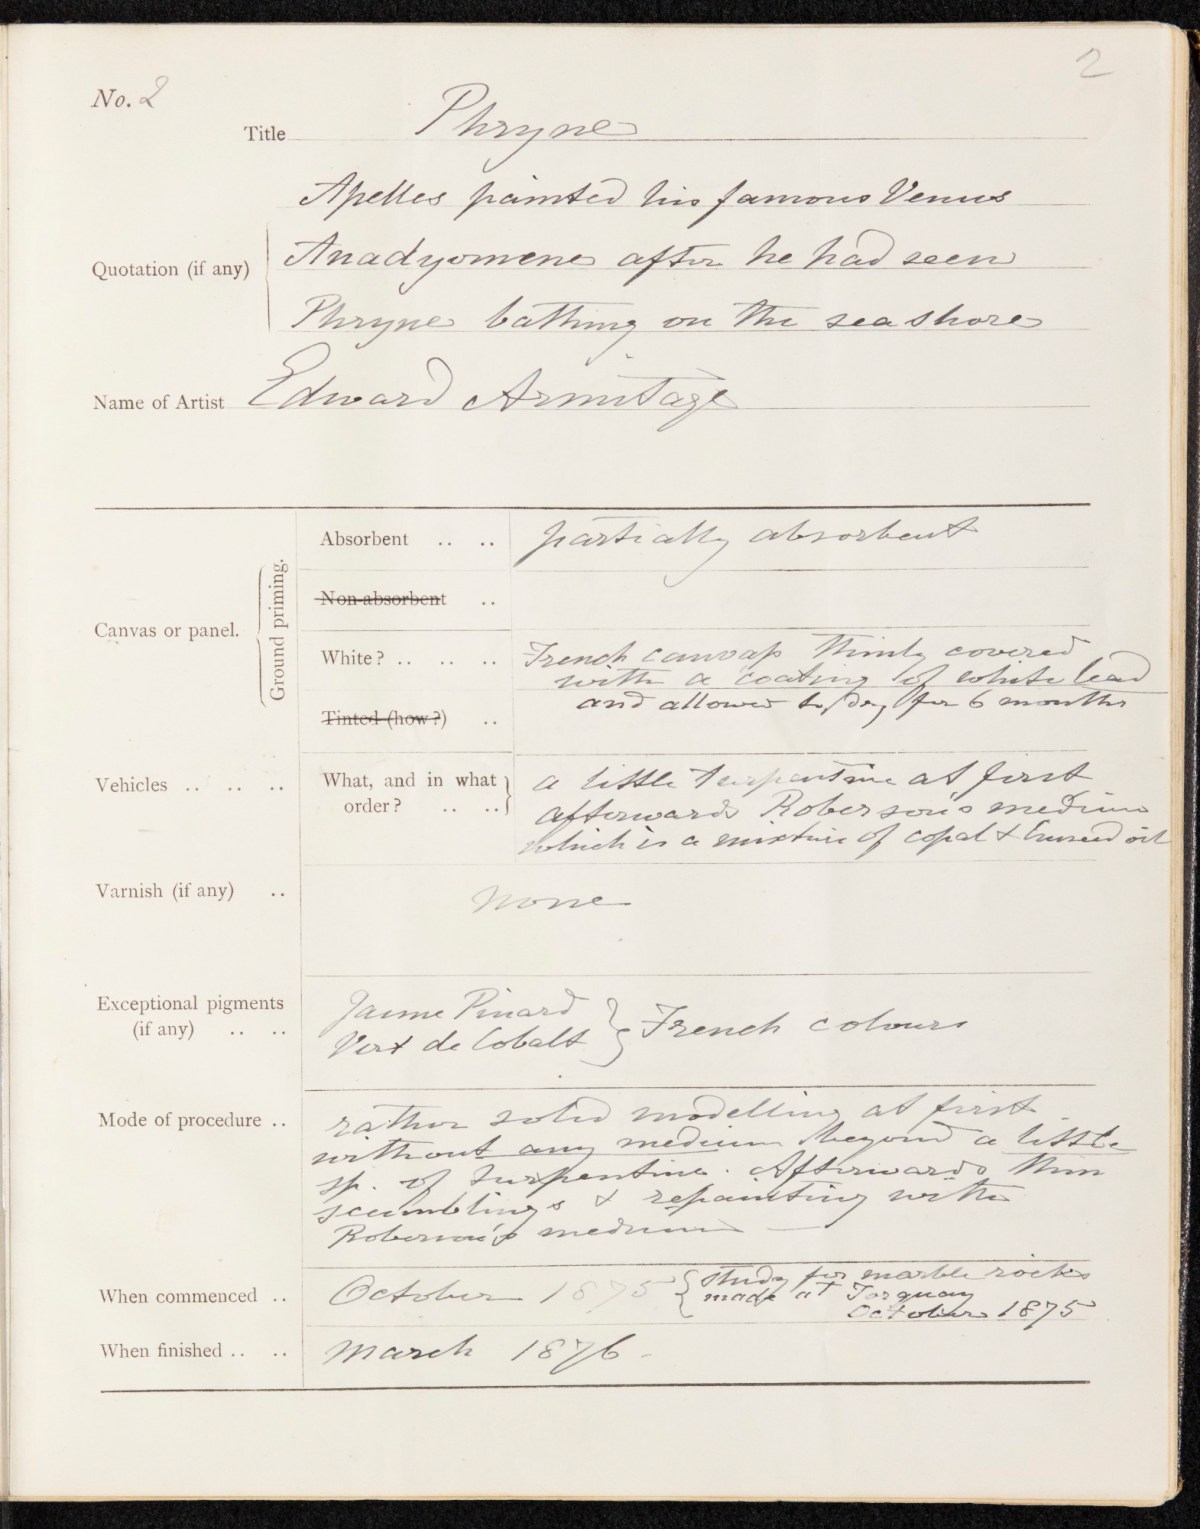 2
No. 2
Title Phryne
Apelles painted his famous Venus
Quotation (if any) Anadyomene after he had seen
Phryne bathing on the sea shore
Name of Artist Edward Armitage
Canvas or panel.
Ground priming.
Absorbent .. .. partially absorbent
Non-absorbent ..
White? .. .. .. French canvass thinly covered
with a coating of white lead
Tinted (how?) .. and allowed to dry for 6 months
Vehicles .. .. .. What, and in what order? .. .. a little turpentine at first
afterwards Roberson's medium
which is a mixture of copal & linseed oil
Varnish (if any) .. none
Exceptional pigments (if any) .. .. Jaune Pinard
Vert de Cobalt } French colours
Mode of procedure .. rather solid modelling at first
without any medium beyond a little
sp. of turpentine. Afterwards thin
scumblings & repainting with
Roberson's medium
When commenced .. October 1875 { study for marble rocks
made at Torquay
October 1875
When finished .. .. March 1876